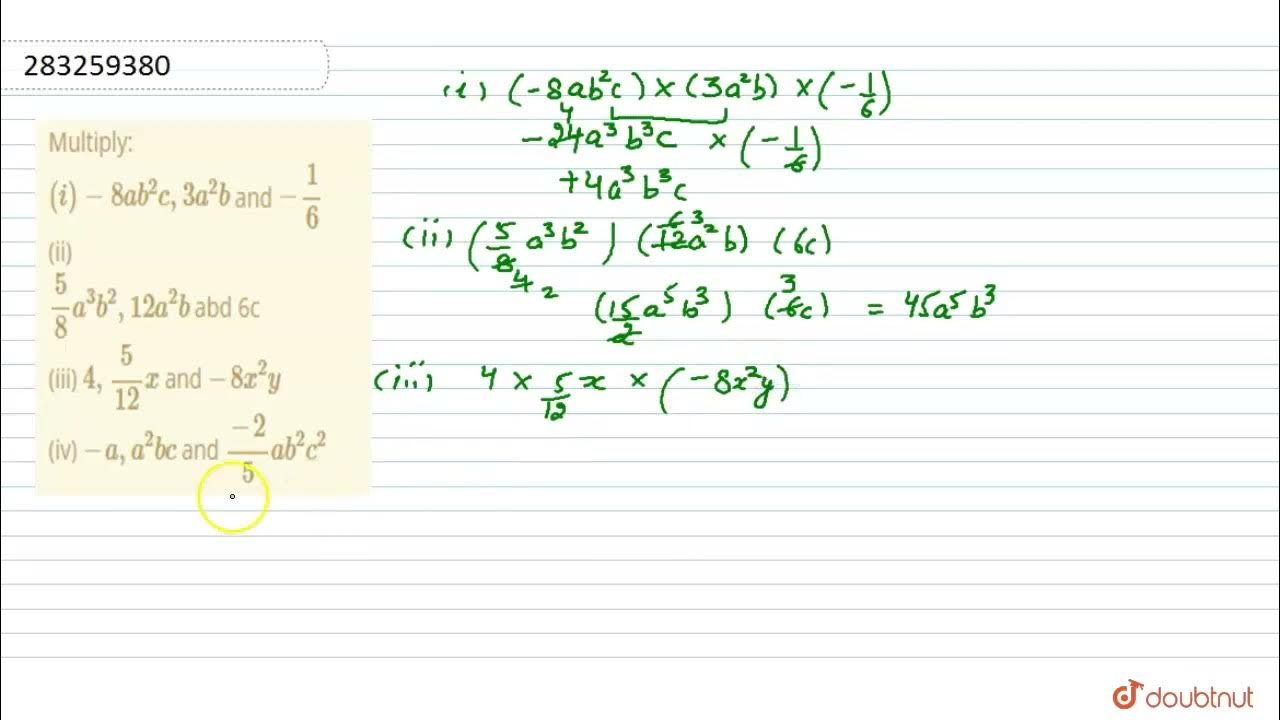 283259380
Multiply:
(i) − 8ab²c, 3a²b and −1/6
(ii)
5/8 a³b², 12a²b abd 6c
(iii) 4, 5/12 x and −8x²y
(iv) −a, a²bc and −2/5 ab²c²
(i) (−8ab²c) × (3a²b) × (−1/6)
4
−24a³b³c × (−1/6)
+4a³b³c
(ii) (5/8 a³b²) (12a²b) (6c)
6 3
4 2
(15/2 a⁵b³) (6c) = 45a⁵b³
3
(iii) 4 × 5/12 x × (−8x²y)
doubtnut